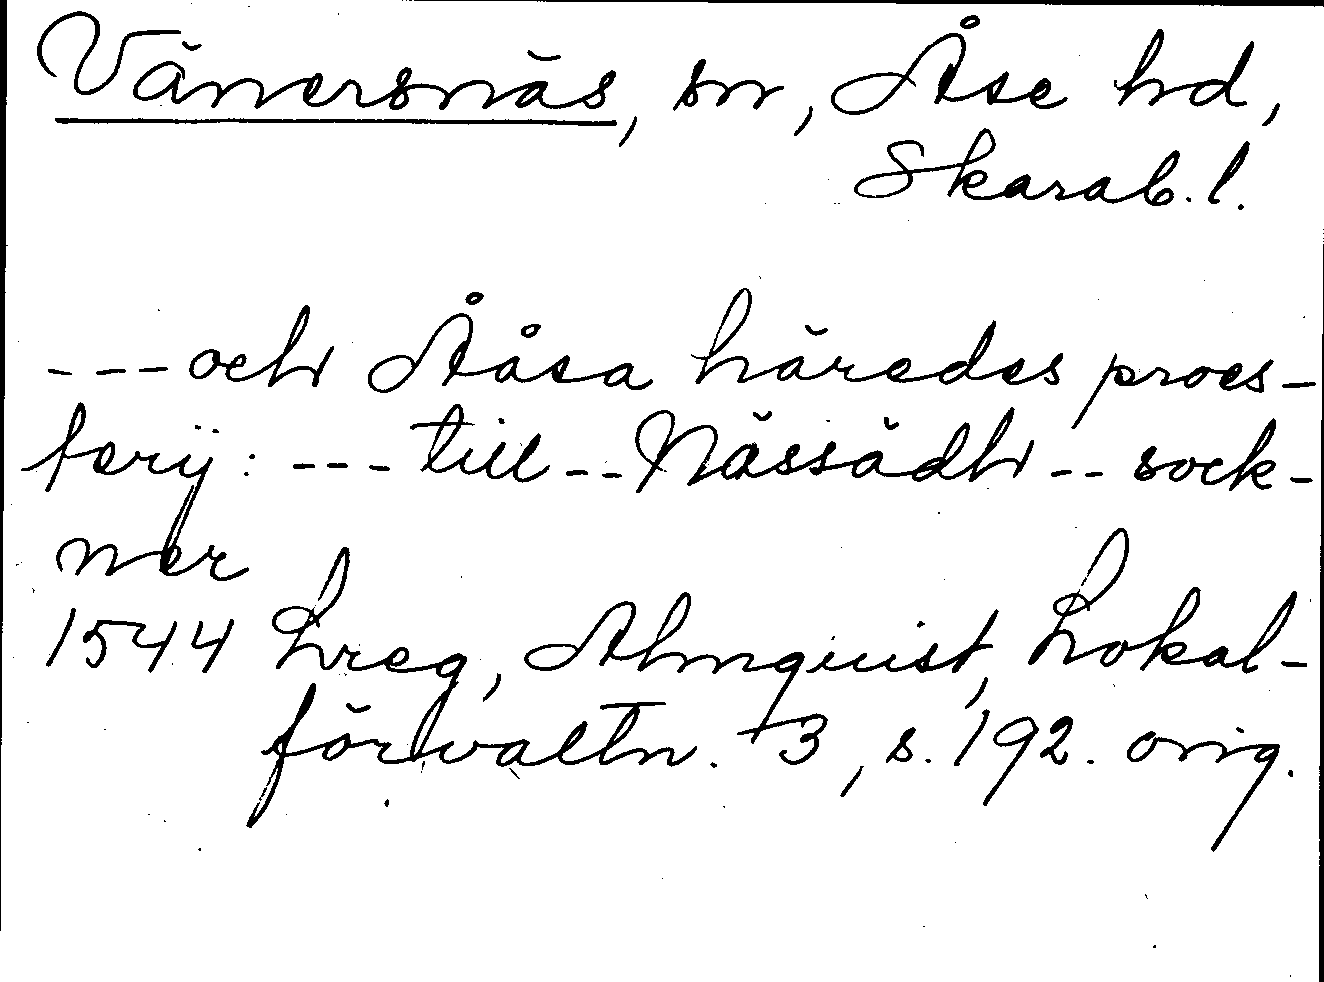 Vänersnäs, sn, Åse hd,
Skarab. l.
---och Ååsa häredes proes-
terij: ---till--Nässädh--sock-
ner
1544 Lreg, Almquist, Lokal-
förvaltn. 3, s. 192. orig.